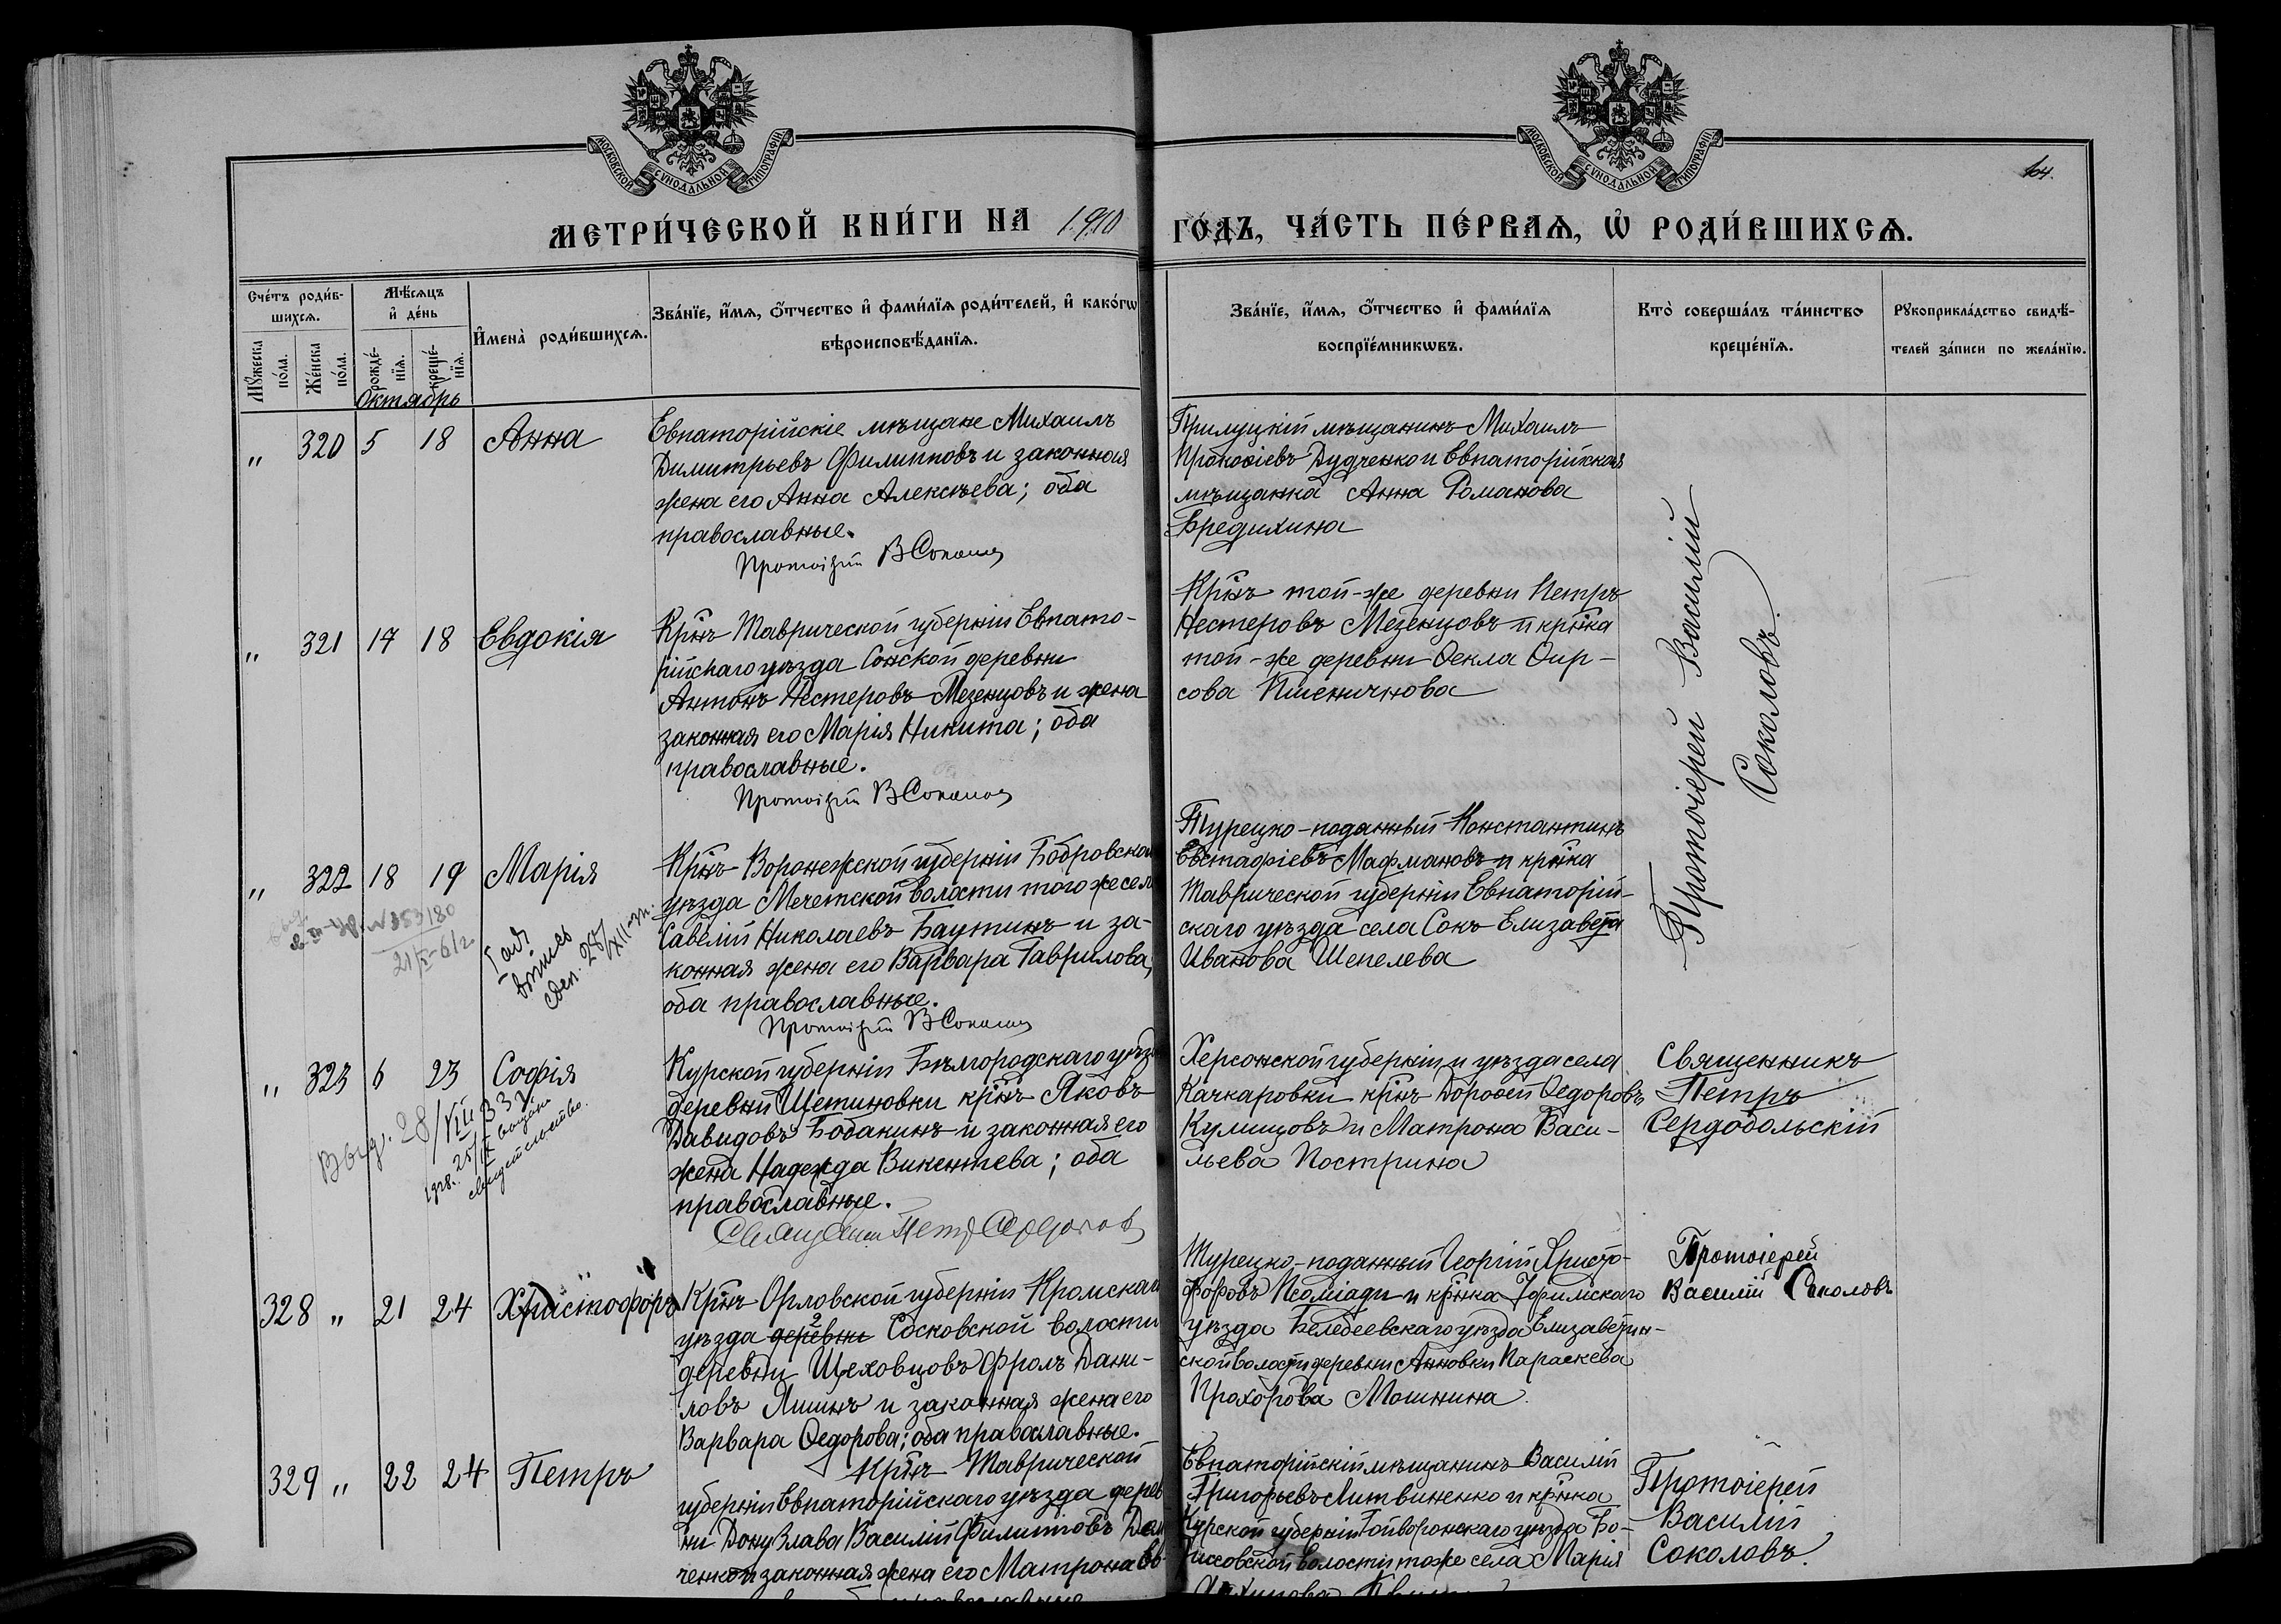 МОСКОВСКОЙ СѴНОДАЛЬНОЙ ТИПОГРАФІИ
МОСКОВСКОЙ СѴНОДАЛЬНОЙ ТИПОГРАФІИ
104.
МЕТРИ́ЧЕСКОЙ КНИ́ГИ НА 1910
ГО́ДЪ, ЧА́СТЬ ПЕ́РВАѦ, Ѡ҆ РОДИ́ВШИХСѦ.
Сче́тъ роди́в-
шихсѧ.
Мꙋ́жеска
по́ла.
Же́нска
по́ла.
Мѣ́сѧцъ
и҆ де́нь
рожде́-
нїѧ.
креще́-
нїѧ.
И҆мена̀ роди́вшихсѧ.
Зва́нїе, и҆́мѧ, ѻ҆́тчество и҆ фами́лїѧ роди́телей, и҆ како́гѡ
вѣроисповѣ́данїѧ.
Зва́нїе, и҆́мѧ, ѻ҆́тчество и҆ фами́лїѧ
воспрїе́мникѡвъ.
Кто̀ соверша́лъ та́инство
креще́нїѧ.
Рꙋкоприкла́дство свидѣ́-
телей за́писи по жела́нїю.
Октябрь
" 320 5 18 Анна
Евпаторійскіе мѣщане Михаилъ
Димитрьевъ Филипповъ и законная
жена его Анна Алексѣева; оба
православные.
Протоіерей В Соколов
Прилуцкій мѣщанинъ Михаилъ
Прокофіевъ Дудченко и Евпаторійская
мѣщанка Анна Романова
Бредихина
Протоіерей Василій
Соколовъ.
" 321 17 18 Евдокія
Крнъ Таврической губерніи Евпато-
рійскаго уѣзда Сокской деревни
Антонъ Нестеровъ Мезенцовъ и жена
законная его Марія Никита; оба
православные.
Протоіерей В Соколов
Крнъ той-же деревни Петръ
Нестеровъ Мезенцовъ и крнка
той-же деревни Ѳекла Ѳир-
сова Пшеничнова
" 322 18 19 Марія
21/X-61г
28/XII-
Крнъ Воронежской губерніи Бобровскаго
уѣзда Мечетской волости того же села
Савелій Николаевъ Баутинъ и за-
конная жена его Варвара Гаврилова,
оба православные.
Протоіерей В Соколов
Турецко-поданный Константинъ
Евстафіевъ Мафмановъ и крнка
Таврической губерніи Евпаторій-
скаго уѣзда села Сокъ Елизавета
Иванова Шепелева
" 323 6 23 София
Выд. 28/VIII 33 г
1928г. 25/IX выдано
свидетельство.
Курской губерніи Бѣлгородскаго уѣзда
деревни Щетиновки крнъ Яковъ
Давидовъ Бобакинъ и законная его
жена Надежда Викентьева; оба
православные.
Священник Петр
Херсонской губерніи и уѣзда села
Качкаровки крнъ Дороѳей Ѳедоровъ
Кулишовъ и Матрона Васи-
льева Пострина
Священникъ
Петръ
Сердобольскій
328 " 21 24 Христофоръ
Крнъ Орловской губерніи Кромскаго
уѣзда деревни Сосковской волости
деревни Щеховцовъ Фролъ Дани-
ловъ Лишнъ и законная жена его
Варвара Ѳедорова; оба православные.
Турецко-поданный Георгій Христо-
форовъ Псоміади и крнка Уфимскаго
уѣзда Белебеевскаго уѣзда Елизаветин-
ской волости деревни Анновки Параскева
Прохорова Мошнина.
Протоіерей
Василій Соколовъ
329 " 22 24 Петръ
Крнъ Таврической
губерніи Евпаторійскаго уѣзда дерев
ни Донузлава Василій Филиповъ Дан
ченко и законная жена его Матрона
Евпаторійскій мѣщанинъ Василій
Григорьевъ Литвиненко и крнка
Курской губерніи Гойворонскаго уѣзда Бо-
рисовской волости тоже села Марія
Протоіерей
Василій
Соколовъ.